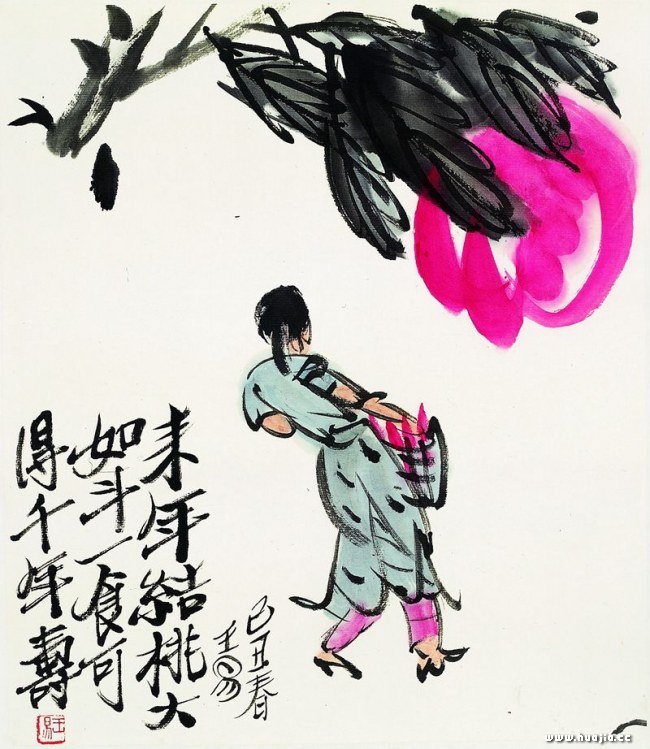 来年結桃大
如斗一食可
得千年壽
己丑春
王易
www.huajia.cc